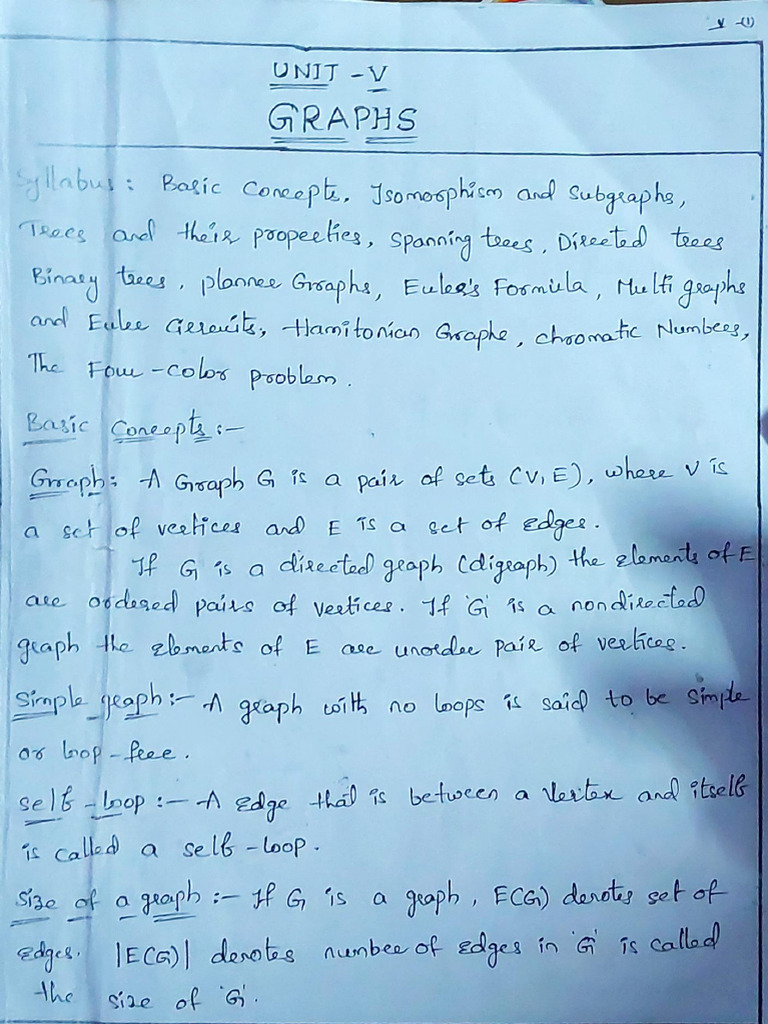 V-(1)
UNIT - V
GRAPHS
Syllabus: Basic Concepts, Isomorphism and Subgraphs,
Trees and their properties, Spanning trees, Directed trees
Binary trees, planner Graphs, Euler's Formula, Multi graphs
and Euler Circuits, Hamitonian Graphs, chromatic Numbers,
The Four-color problem.
Basic Concepts:-
Graph: A Graph G is a pair of sets (V, E), where V is
a set of vertices and E is a set of edges.
If G is a directed graph (digraph) the elements of E
are ordered pairs of vertices. If 'G' is a nondirected
graph the elements of E are unorder pair of vertices.
Simple graph:- A graph with no loops is said to be simple
or loop-free.
self-loop:- A edge that is between a vertex and itself
is called a self-loop.
Size of a graph:- If G is a graph, E(G) denotes set of
edges. |E(G)| denotes number of edges in 'G' is called
the size of 'G'.